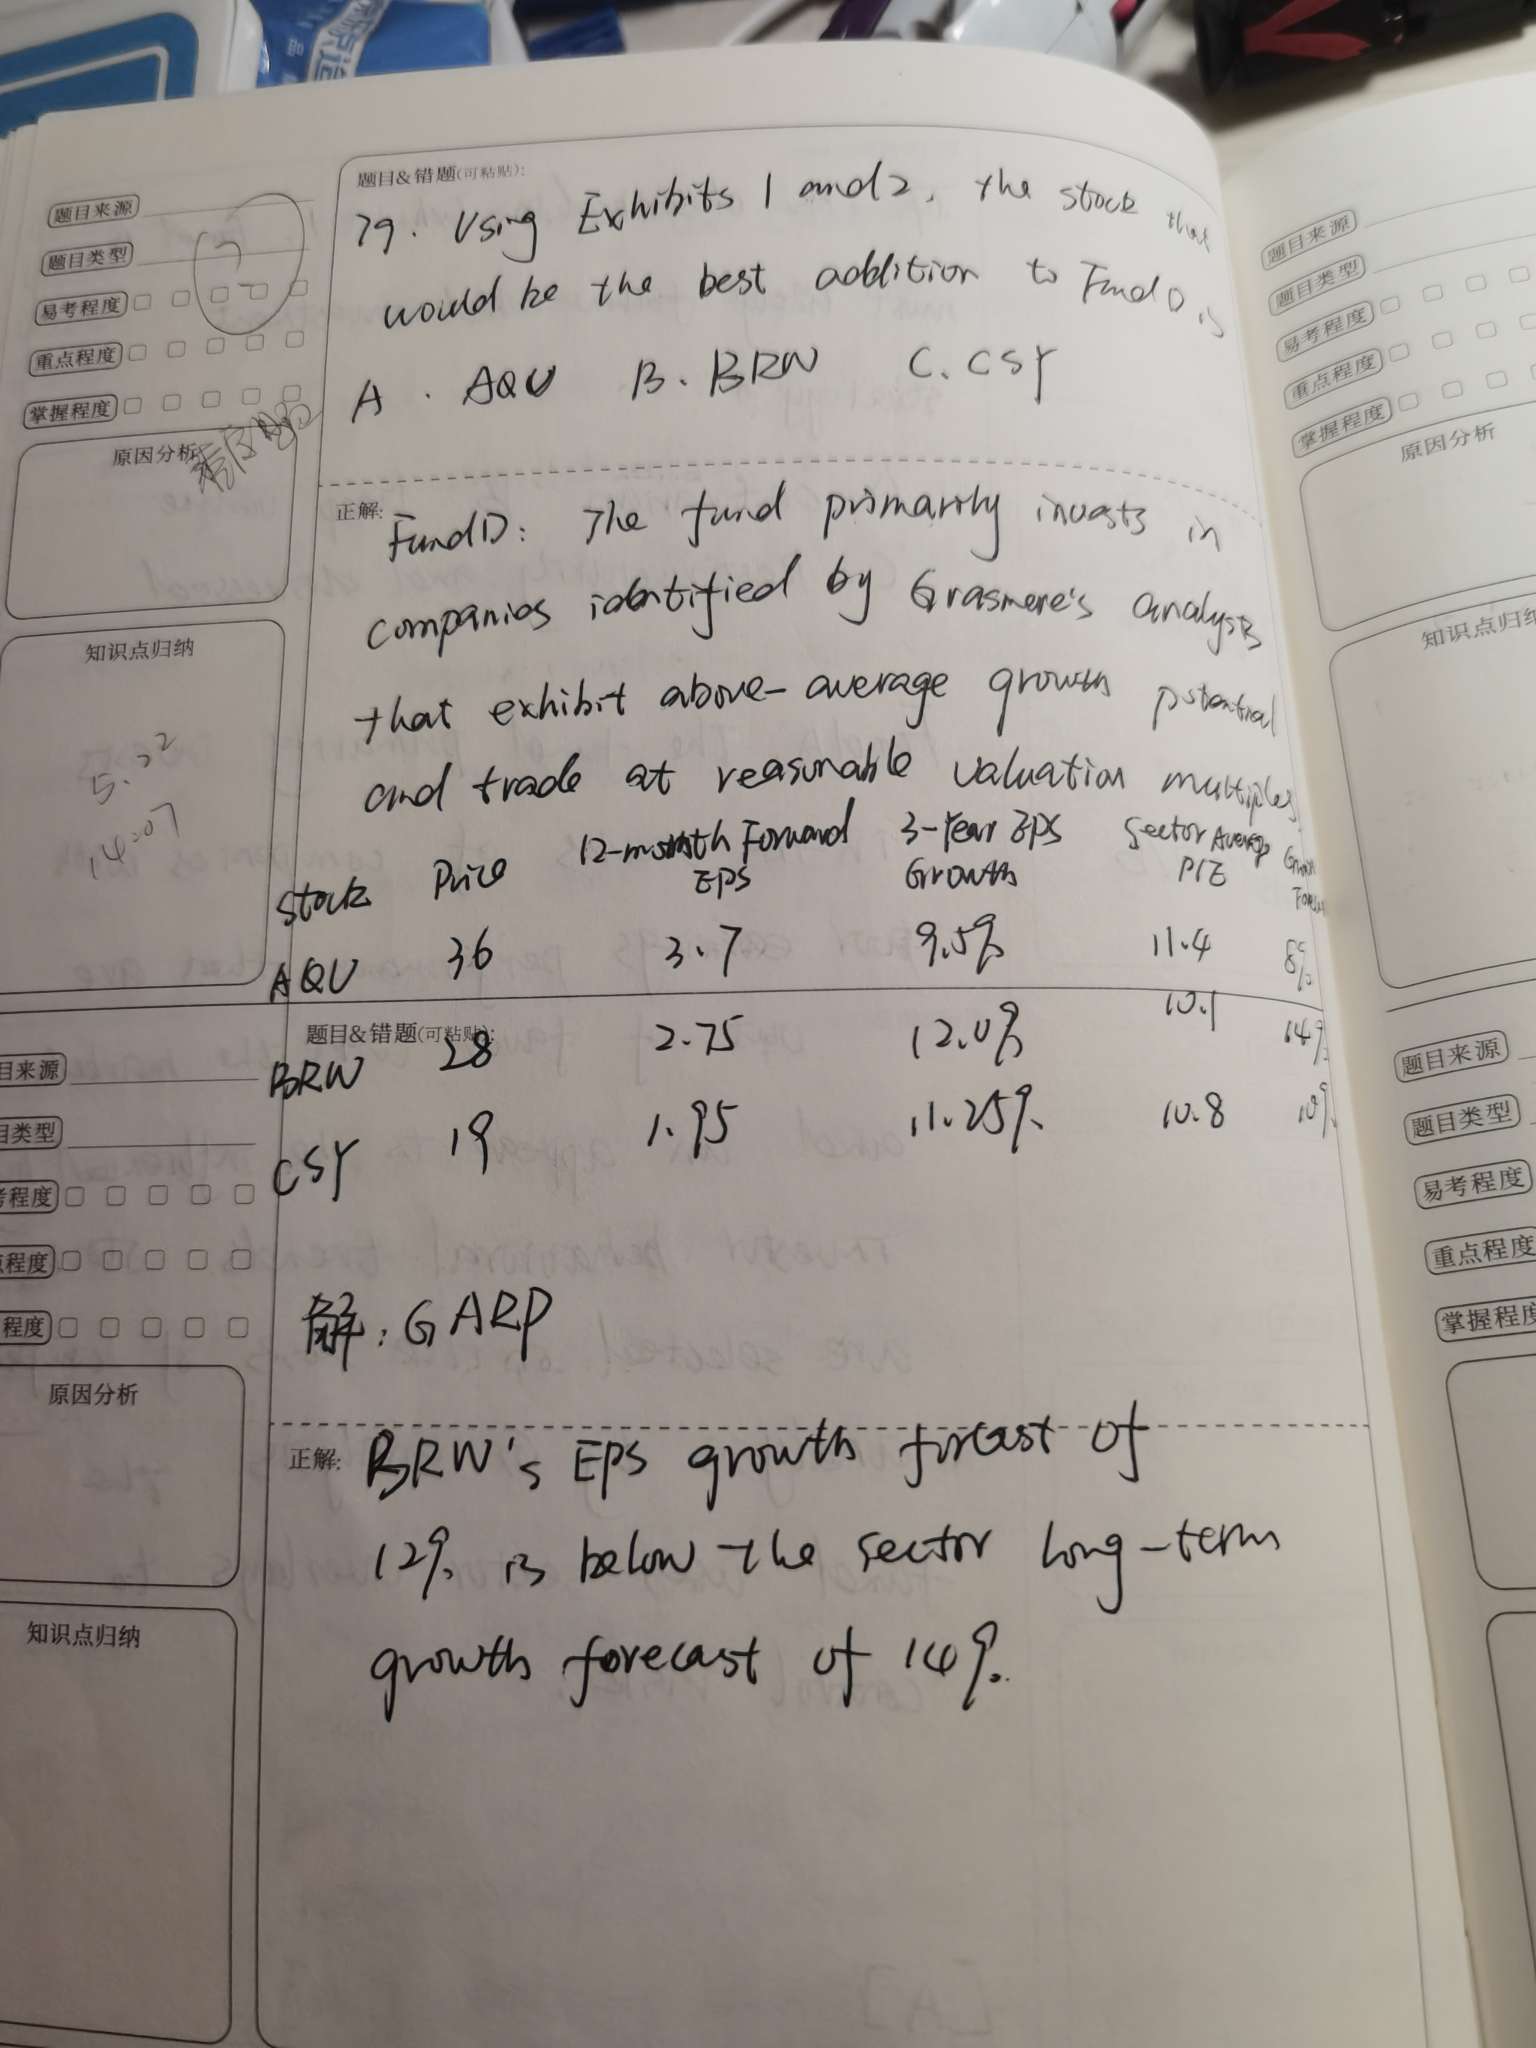 题目来源
题目类型
易考程度
重点程度
掌握程度
原因分析
知识点归纳
5.22
14:07
题目&错题(可粘贴):
79. Using Exhibits 1 and 2, the stock that
would be the best addition to Fund D is
A. AQU B. BRW C. CSY
正解:
Fund D: The fund primarily invests in
companies identified by Grasmere's analysts
that exhibit above-average growth potential
and trade at reasonable valuation multiples.
Stock Price 12-month Forward EPS 3-Year EPS Growth Sector Average P/E
AQU 36 3.7 9.5% 11.4 8%
BRW 28 2.75 12.0% 10.1 14%
CSY 19 1.95 11.25% 10.8 10%
题目&错题(可粘贴):
目来源
目类型
考程度
点程度
程度
原因分析
知识点归纳
解: GARP
正解:
BRW's EPS growth forcast of
12% is below the sector long-term
growth forecast of 14%.
题目来源
题目类型
易考程度
重点程度
掌握程度
原因分析
知识点归纳
题目来源
题目类型
易考程度
重点程度
掌握程度